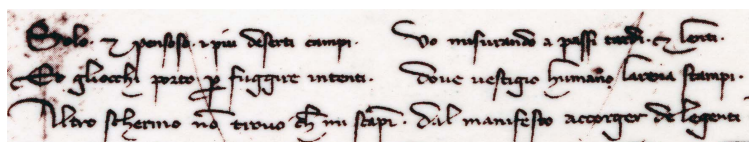 Solo ⁊ pensoso i piu deserti campi · Vo misurando a passi tardi ⁊ lenti ·
Et gliocchi porto ꝑ fuggire intenti · doue uestigio human larena stampi ·
Altro schermo nō trouo ch̄ mi scāpi · dal manifesto accorger de legenti